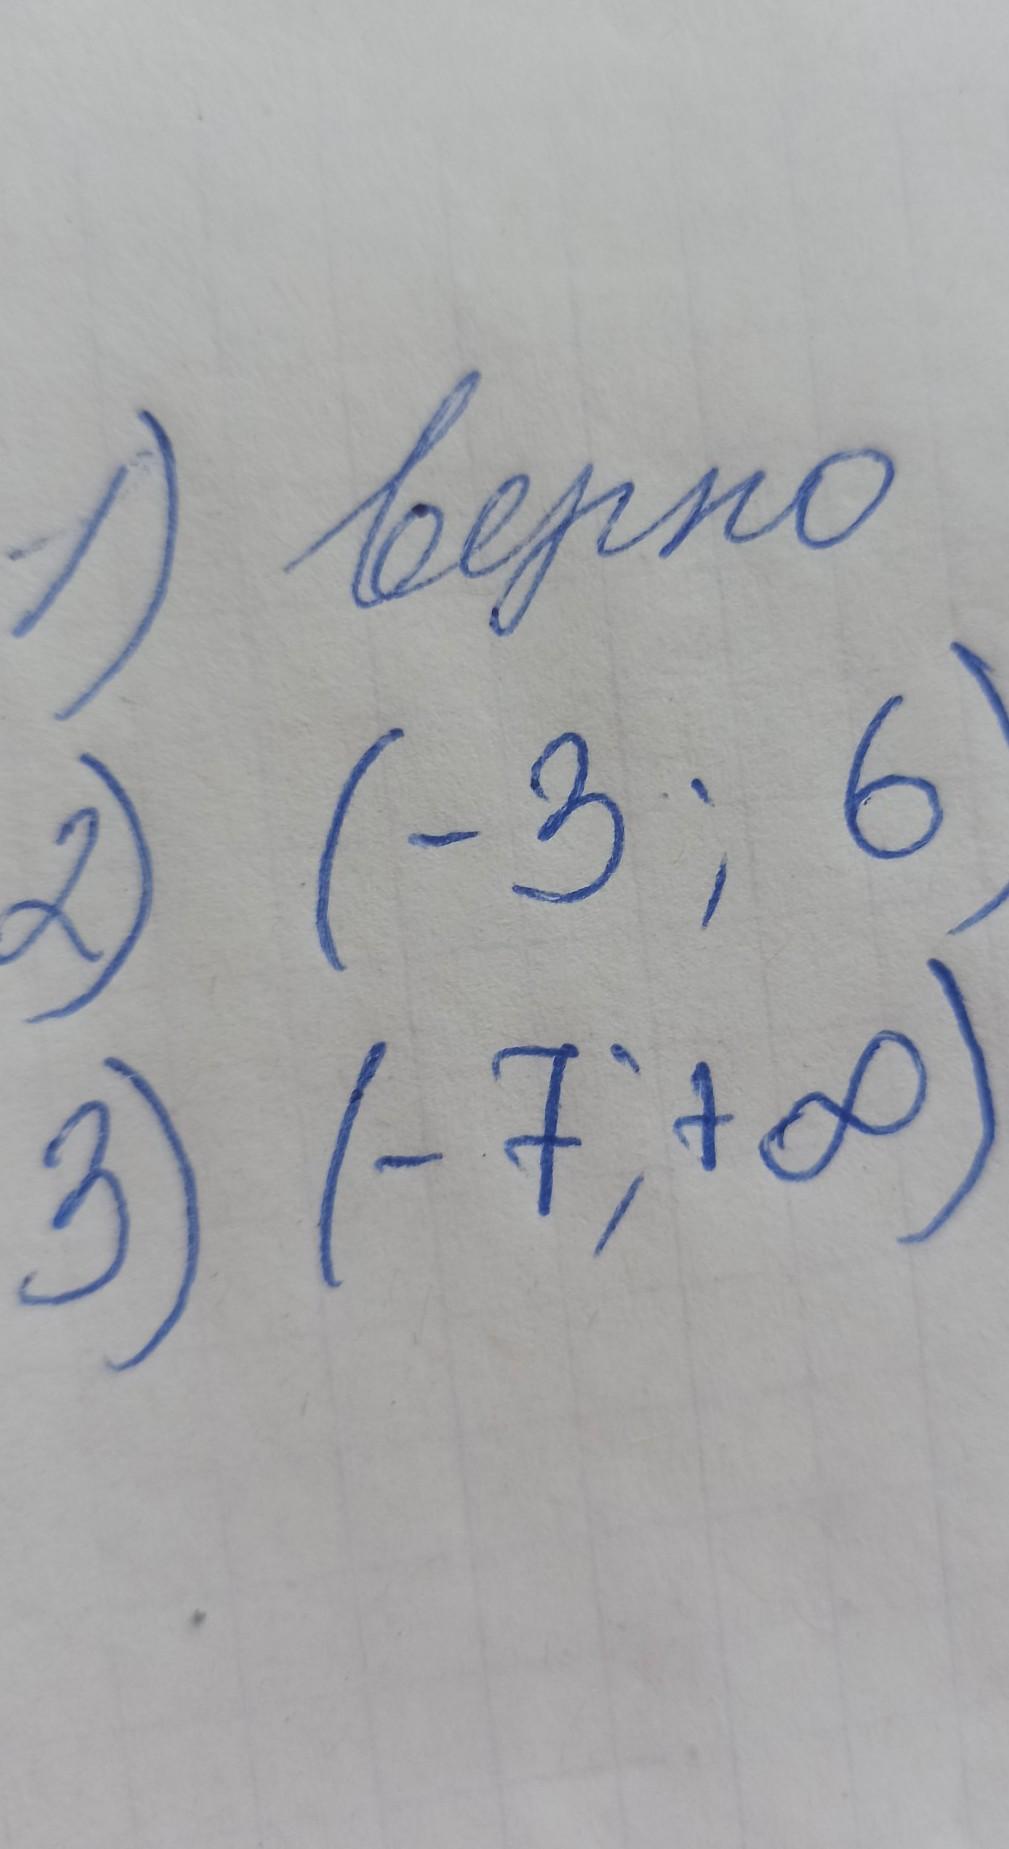 1) верно
2) (-3; 6)
3) (-7; +∞)